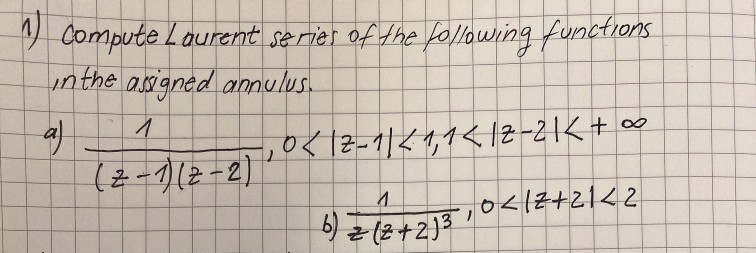 1) Compute Laurent series of the following functions
in the assigned annulus.
a) 1/((z-1)(z-2)), 0<|z-1|<1, 1<|z-2|<+∞
b) 1/(z(z+2)^3), 0<|z+2|<2